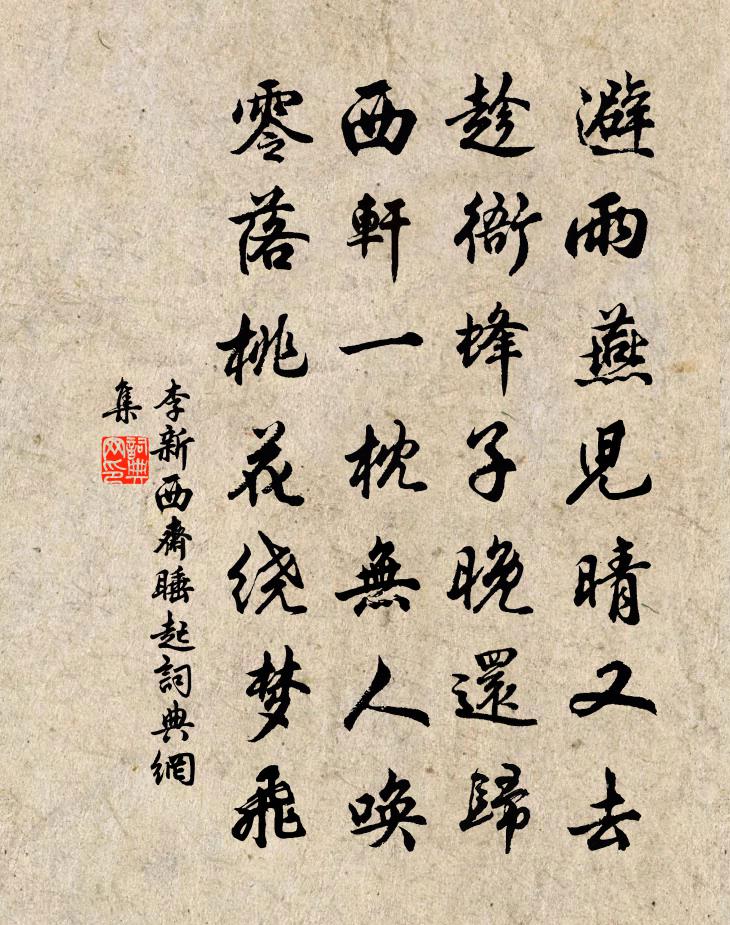 避雨燕兒晴又去
趁衙蜂子晚還歸
西軒一枕無人唤
零落桃花绕梦飛
李新西齋睡起詞典網
集
詞典
网印